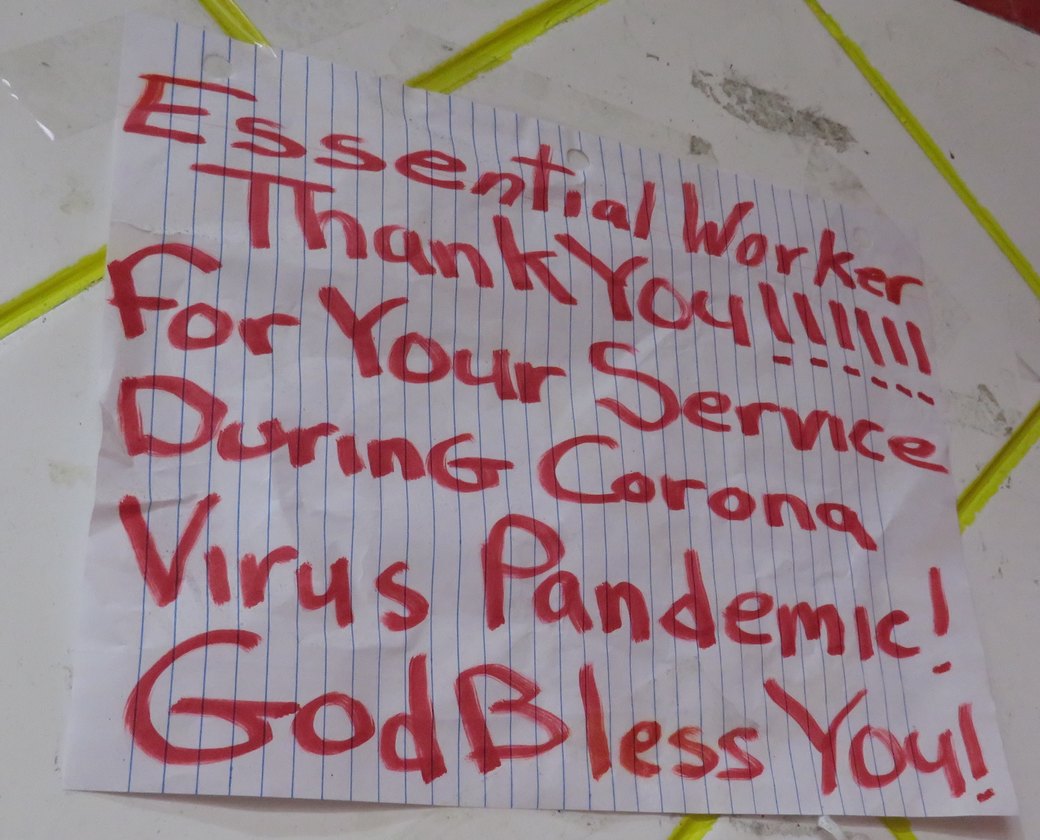 Essential Worker
Thank You!!!!!!
For Your Service
During Corona
Virus Pandemic!
God Bless You!